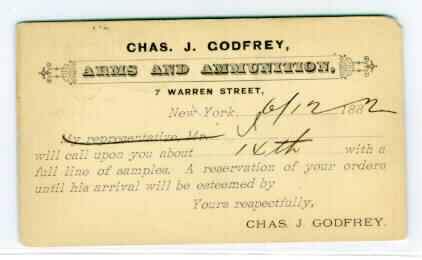 CHAS. J. GODFREY,
ARMS AND AMMUNITION,
7 WARREN STREET,
New-York, 6/12 1882
My representative, Mr. I
will call upon you about 14th with a
full line of samples. A reservation of your orders
until his arrival will be esteemed by
Yours respectfully,
CHAS. J. GODFREY.